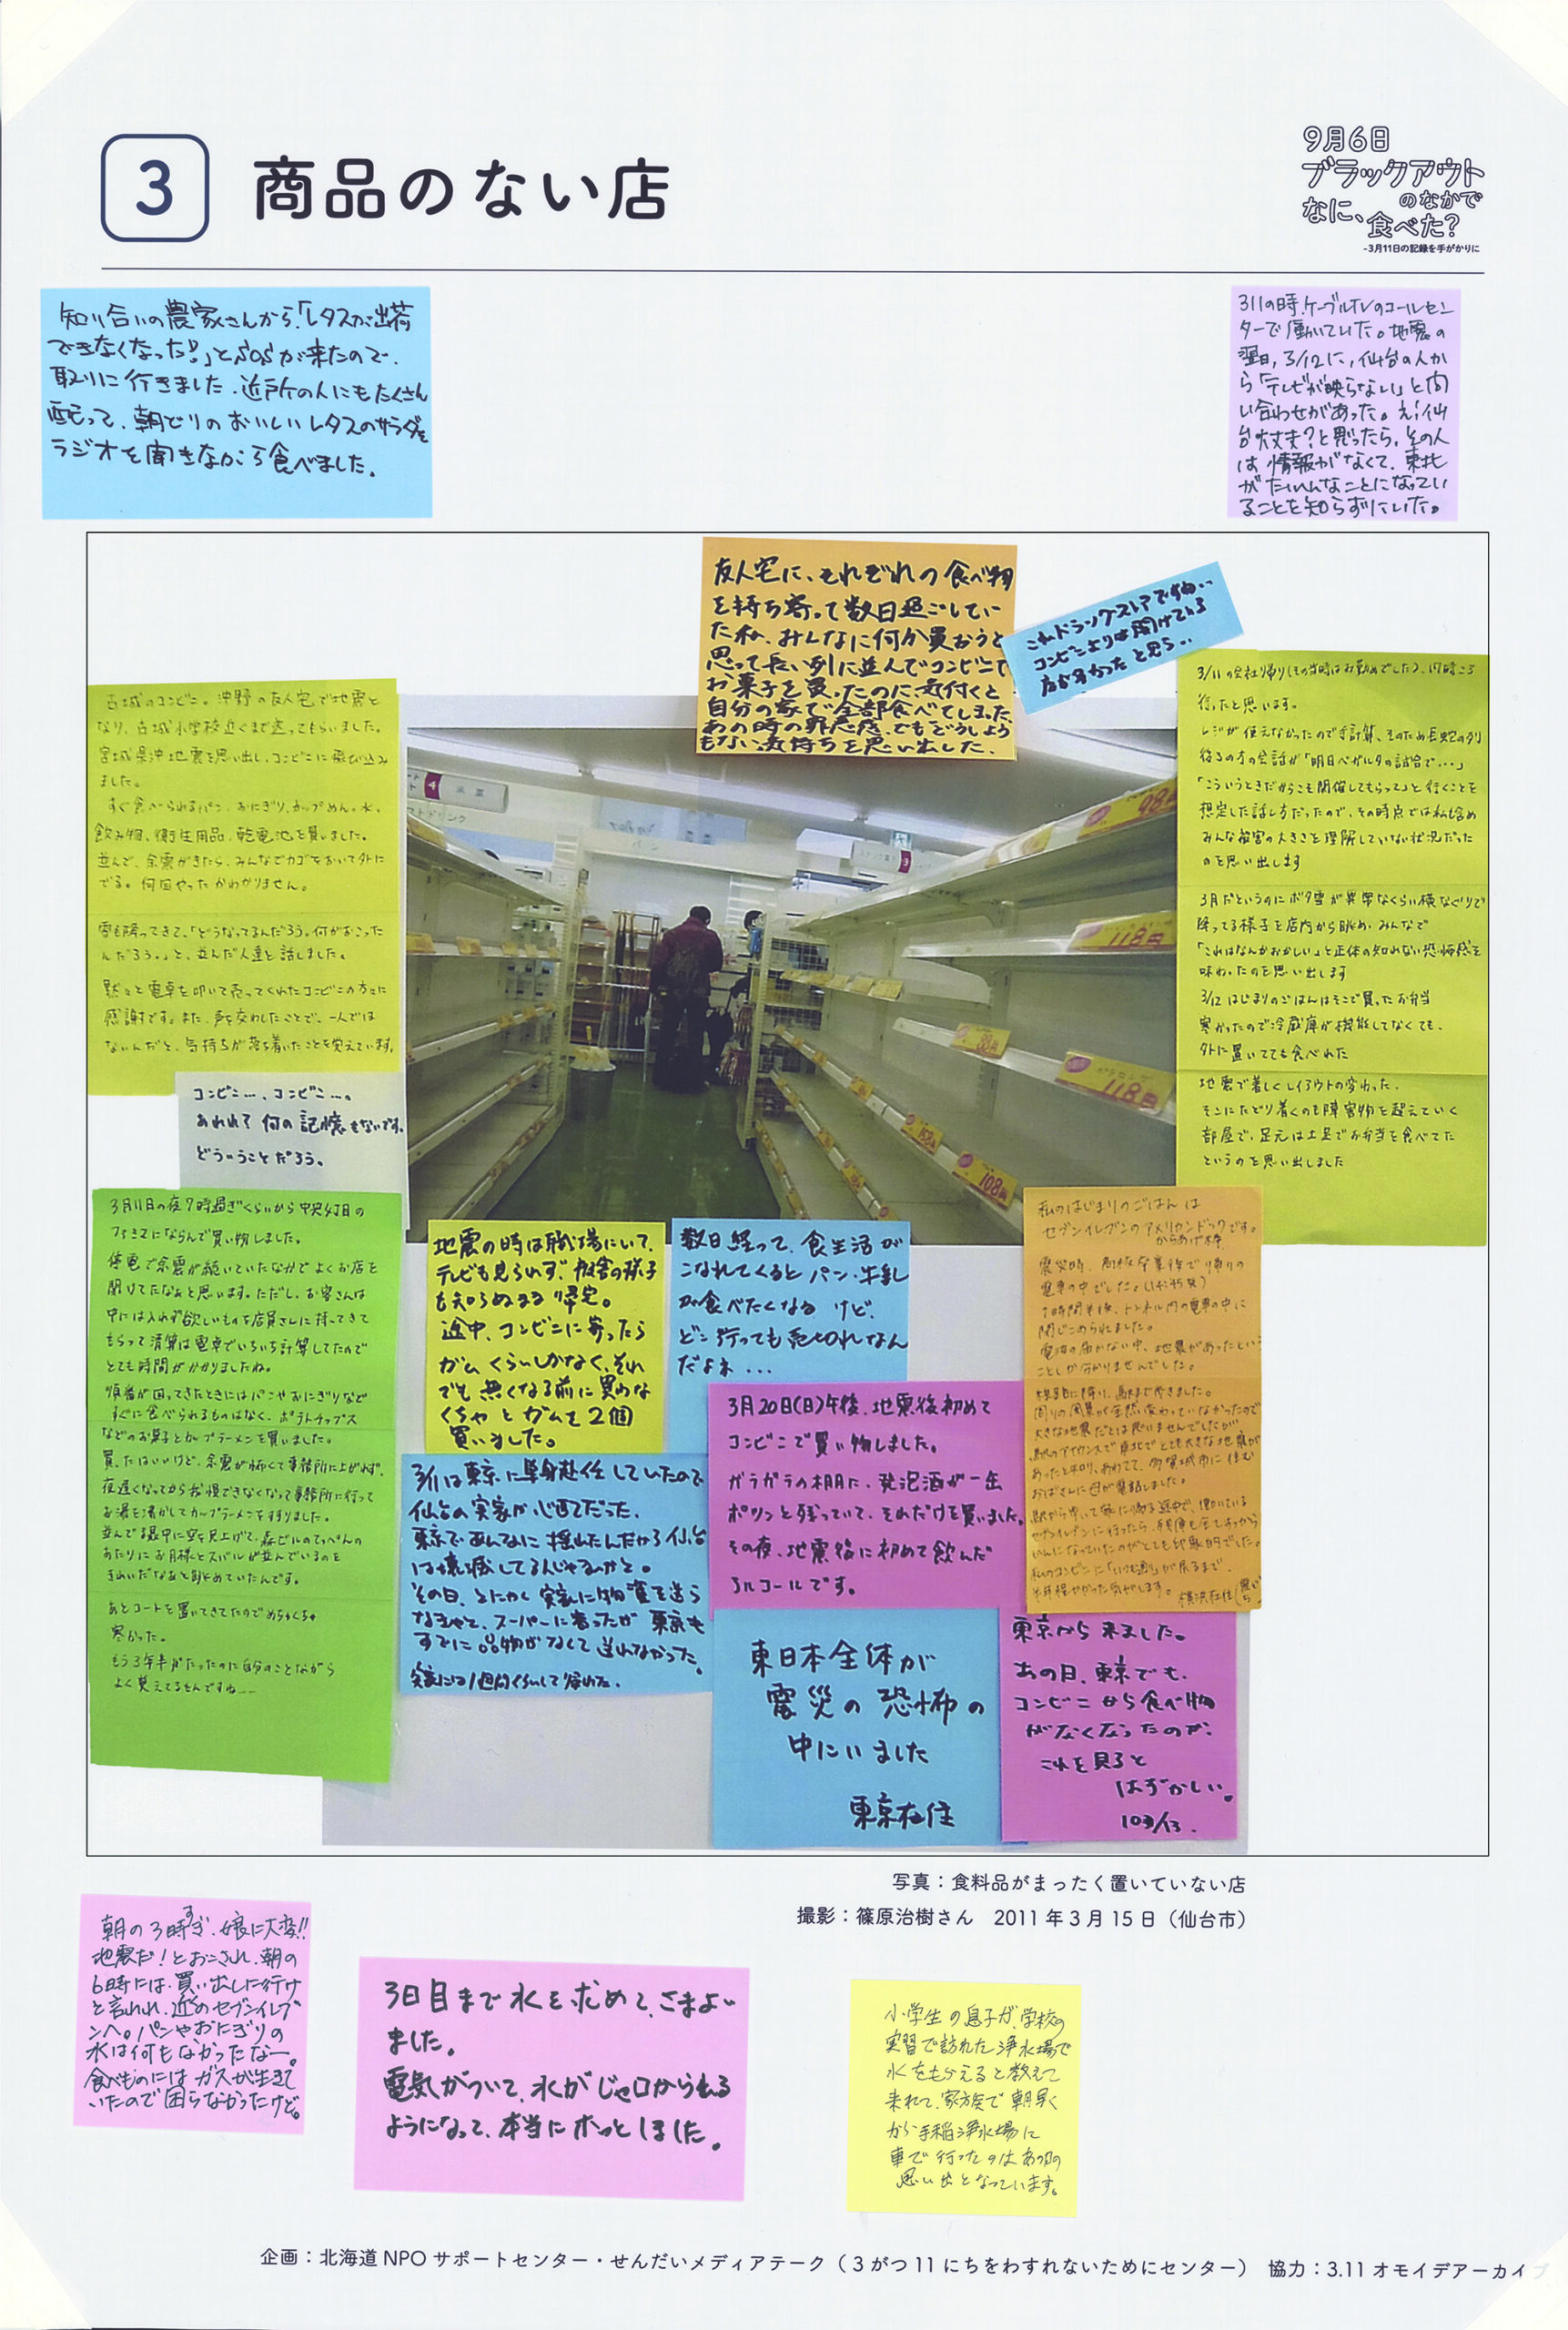 3
商品のない店
9月6日
ブラックアウト
のなかで
なに、食べた?
-3月11日の記録を手がかりに
知り合いの農家さんから、「レタスが出荷
できなくなった!」とSOSが来たので、
取りに行きました。近所の人にもたくさん
配って、朝どりのおいしいレタスのサラダを
ラジオを聞きながら食べました。
311の時、ケーブルTVのコールセン
ターで働いていた。地震の
翌日、3/12に、仙台の人か
ら「テレビが映らない」と問
い合わせがあった。え!仙
台大丈夫?と思ったら、その人
は情報がなくて、東北
がたいへんなことになってい
ることを知らずにいた。
友人宅に、それぞれの食べ物
を持ち寄って数日過ごしてい
た私、みんなに何か買おうと
思って長い列に並んでコンビニで
お菓子を買ったのに、気付くと
自分の家で全部食べてしまった
あの時の罪悪感、でもどうしよう
もない気持ちを思い出した。
これドラッグストアですね..
コンビニよりは開けてる
店が多かったと思う...
古城のコンビニ。沖野の友人宅で地震と
なり、古城小学校近くまで送ってもらいました。
宮城県沖地震を思い出し、コンビニに飛び込み
ました。
すぐ食べられるパン、おにぎり、カップめん。水、
飲み物、衛生用品、乾電池を買いました。
並んで、余震がきたら、みんなでカゴをおいて外に
でる。何回やったかわかりません。
雪も降ってきて、「どうなってるんだろう。何がおこった
んだろう。」と、並んだ人達と話しました。
黙々と電卓を叩いて売ってくれたコンビニの方々に
感謝です。また、声を交わしたことで、一人では
ないんだと、気持ちが落ち着いたことを覚えています。
3/11の会社帰り(その当時はお勤めでした)、17時ころ
行ったと思います。
レジが使えなかったので手計算、そのため長蛇の列
後ろの方の会話が「明日ベガルタの試合で...」
「こういうときだからこそ開催してもらって」と行くことを
想定した話し方だったので、その時点では私も含め
みんな被害の大きさを理解していない状況だった
のを思い出します
3月だというのにボタ雪が異常なくらい横なぐりで
降ってる様子を店内から眺め、みんなで
「これはなんかおかしい」と正体の知れない恐怖感を
味わったのを思い出します
3/12 はじまりのごはんはそこで買ったお弁当
寒かったので冷蔵庫が機能してなくても、
外に置いてても食べれた
地震で著しくレイアウトの変わった、
そこにたどり着くのも障害物を超えていく
部屋で、足元は土足でお弁当を食べてた
というのを思い出しました
コンビニ...、コンビニ...。
あれれ?何の記憶もないです。
どういうことだろう。
3月11日の夜7時過ぎくらいから中央4丁目の
ファミマにならんで買い物しました。
停電で余震が続いていたなかでよくお店を
開けてたなぁと思います。ただし、お客さんは
中には入れず欲しいものを店員さんに持ってきて
もらって清算は電卓でいちいち計算してたので
とても時間がかかりましたね。
順番が回ってきたときにはパンやおにぎりなど
すぐに食べられるものはなく、ポテトチップス
などのお菓子とカップラーメンを買いました。
買ったはいいけど、余震が怖くて事務所に上がれず、
夜遅くなってから我慢できなくなって事務所に行って
お湯を沸かしてカップラーメンを作りました。
並んでる最中に空を見上げて、森ビルのてっぺんの
あたりにお月様とスバルが並んでいるのを
きれいだなあと眺めていたんです。
あとコートを置いてきてたのでめちゃくちゃ
寒かった。
もう3年半がたったのに自分のことながら
よく覚えてるもんですね...
地震の時は職場にいて、
テレビも見られず、被害の様子
も知らぬまま帰宅。
途中、コンビニに寄ったら
ガムくらいしかなく、それ
でも無くなる前に買わな
くちゃとガムを2個
買いました。
数日経って、食生活が
こなれてくるとパン・牛乳
が食べたくなるけど、
どこ行っても売切れなん
だよネ...
3/11は東京に単身赴任していたので
仙台の実家が心配だった。
東京であんなに揺れたんだから仙台
は壊滅してるんじゃないかと。
その日、とにかく実家に物資を送ら
なきゃと、スーパーに寄ったが東京も
すでに品物がなくて送れなかった。
実家には1週間くらいして帰れた。
3月20日(日)午後、地震後初めて
コンビニで買い物しました。
ガラガラの棚に、発泡酒が一缶
ポツンと残っていて、それだけを買いました。
その夜、地震後に初めて飲んだ
アルコールです。
私のはじまりのごはんは
セブンイレブンのアメリカンドックです。
からあげ棒
電車の中でした。(14:45発)
閉じこめられました。
電波の届かない中、地震があったという
ことしか分かりませんでした。
東日本全体が
震災の恐怖の
中にいました
東京在住
東京から来ました。
あの日、東京でも、
コンビニから食べ物
がなくなったのが、
これを見ると
はずかしい。
4
パン
3
98円
118円
118円
108円
写真:食料品がまったく置いていない店
撮影:篠原治樹さん 2011年3月15日(仙台市)
朝の3時すぎ、娘に大変!!
地震だ!とおこされ、朝の
6時には、買い出しに行け
と言われ、近のセブンイレブ
ンへ。パンやおにぎりの
水は何もなかったなー。
食べものにはガスが生きて
いたので困らなかったけど。
3日目まで水を求めて、さまよい
ました。
電気がついて、水がじゃ口から出る
ようになって、本当にホッとしました。
小学生の息子が、学校の
実習で訪れた浄水場で
水をもらえると教えて
来れて、家族で朝早く
から手稲浄水場に
車で行ったのはあの日の
思い出となっています。
企画:北海道NPOサポートセンター・せんだいメディアテーク(3がつ11にちをわすれないためにセンター) 協力:3.11オモイデアーカイブ